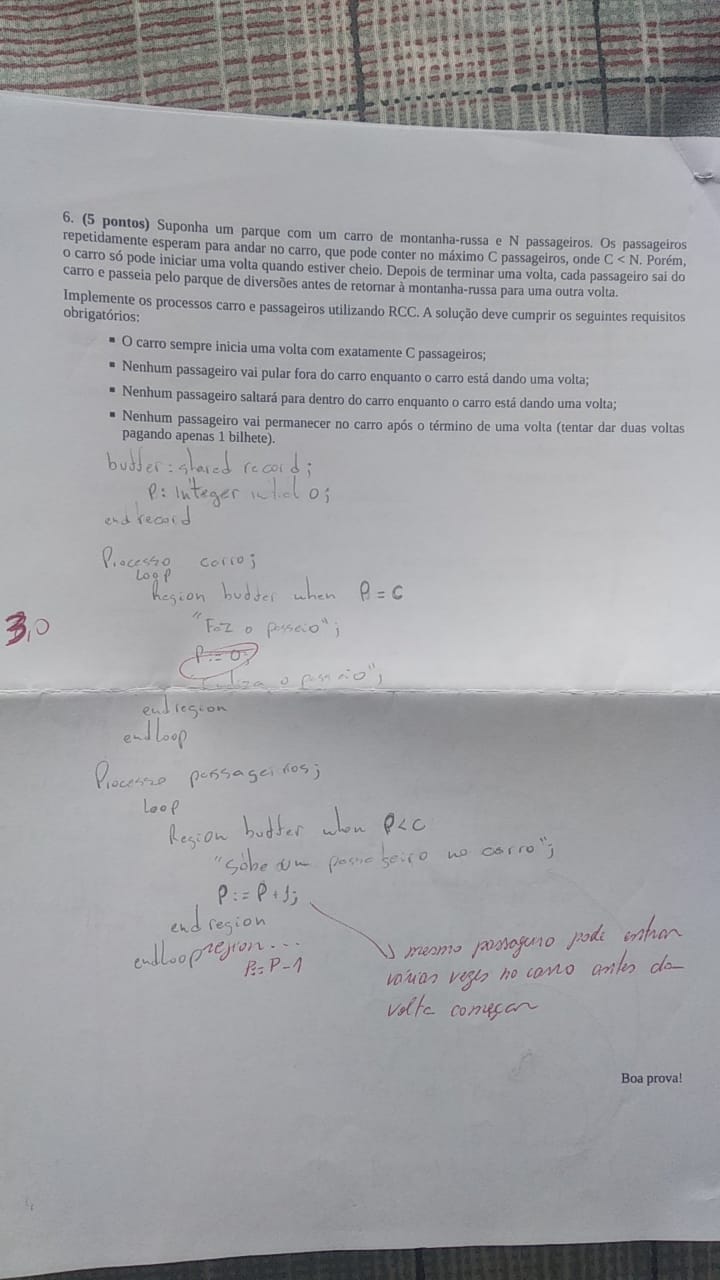 6. (5 pontos) Suponha um parque com um carro de montanha-russa e N passageiros. Os passageiros
repetidamente esperam para andar no carro, que pode conter no máximo C passageiros, onde C < N. Porém,
o carro só pode iniciar uma volta quando estiver cheio. Depois de terminar uma volta, cada passageiro sai do
carro e passeia pelo parque de diversões antes de retornar à montanha-russa para uma outra volta.
Implemente os processos carro e passageiros utilizando RCC. A solução deve cumprir os seguintes requisitos
obrigatórios:
▪ O carro sempre inicia uma volta com exatamente C passageiros;
▪ Nenhum passageiro vai pular fora do carro enquanto o carro está dando uma volta;
▪ Nenhum passageiro saltará para dentro do carro enquanto o carro está dando uma volta;
▪ Nenhum passageiro vai permanecer no carro após o término de uma volta (tentar dar duas voltas
pagando apenas 1 bilhete).
budder: shared record;
P: Integer initial 0;
end record
Processo carro;
Loop
Region budder when P = C
"Faz o passeio";
3,0
P := 0;
o passeio";
end region
end loop
Processo passageiros;
Loop
Region budder when P < C
"Sobe um passageiro no carro";
P := P + 1;
end region
endloop region ...
P := P - 1
↳ mesmo passageiro pode entrar
várias vezes no carro antes da
volta começar
Boa prova!